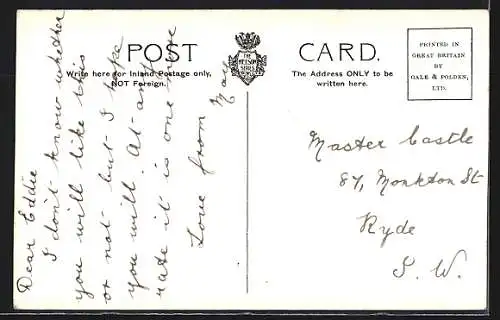 POST CARD.
THE NELSON SERIES
Write here for Inland Postage only,
NOT Foreign.
The Address ONLY to be
written here.
PRINTED IN
GREAT BRITAIN
BY
GALE & POLDEN,
LTD.
Dear Eddie
I don't know whether
you will like this
or not - but I hope
you will. At any
rate it is one more
Love from
May
Master Castle
87, Monkton St
Ryde
I. W.